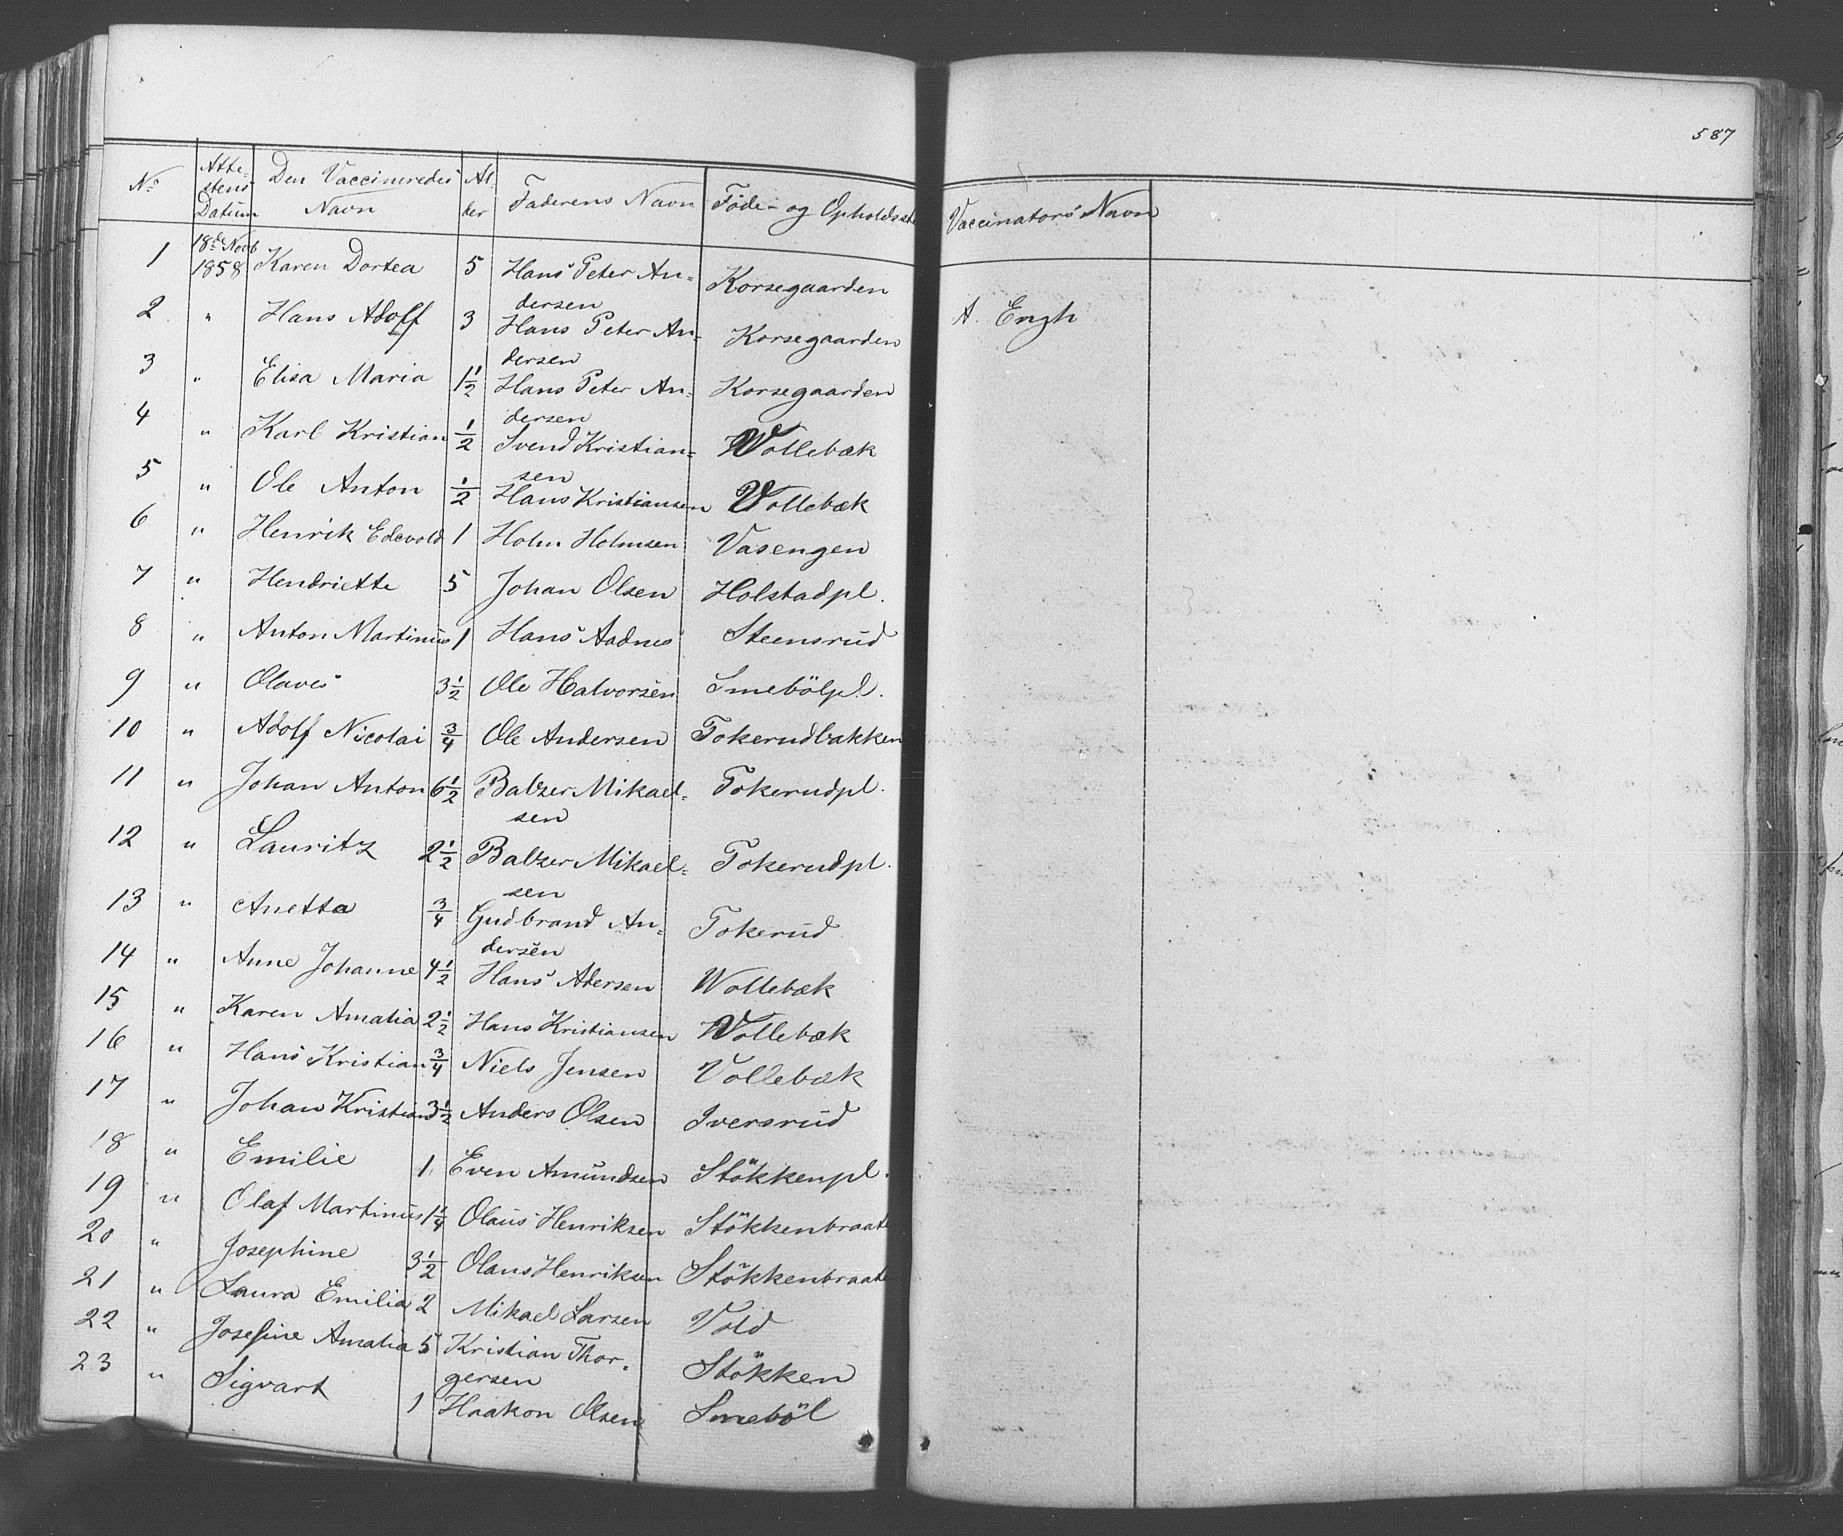 587
No Attestens Datum Den Vaccineredes Navn Alder Faderens Navn Föde- og Opholdsste Vaccinators Navn
1 18de Novb 1858 Karen Dortea 5 Hans Peter Andersen Korsegaarden
2 " Hans Adolf 3 Hans Peter Andersen Korsegaarden A. Engh
3 " Elisa Maria 1 1/2 Hans Peter Andersen Korsegaarden
4 " Karl Kristian 1/2 Svend Kristiansen Wollebæk
5 " Ole Anton 1/2 Hans Kristiansen Vollebæk
6 " Henrik Edevold 1 Holm Holmsen Vasengen
7 " Hendriette 5 Johan Olsen Holstadpl.
8 " Anton Martinus 1 Hans Aadnes Steensrud
9 " Olaves 3 1/2 Ole Halvorsen Smebölpl.
10 " Adolf Nicolai 3/4 Ole Andersen Tokerudbakken
11 " Johan Anton 6 1/2 Balzer Mikaelsen Tokerudpl.
12 " Lauritz 2 1/2 Balzer Mikaelsen Tokerudpl.
13 " Anetta 3/4 Gudbrand Andersen Tokerud
14 " Anne Johanne 4 1/2 Hans Adersen Wollebæk
15 " Karen Amalia 2 1/2 Hans Kristiansen Wollebæk
16 " Hans Kristian 3/4 Niels Jensen Vollebæk
17 " Johan Kristian 3 1/2 Anders Olsen Iversrud
18 " Emilie 1 Even Amundsen Stökkenpl.
19 " Olaf Martinus 1 1/4 Olaus Henriksen Stökkenbraate
20 " Josephine 3 1/2 Olaus Henriksen Stökkenbraate
21 " Laura Emilia 2 Mikael Larsen Vold
22 " Josefine Amalia 5 Kristian Thorgersen Stökken
23 " Sigvart 1 Haakon Olsen Smeböl